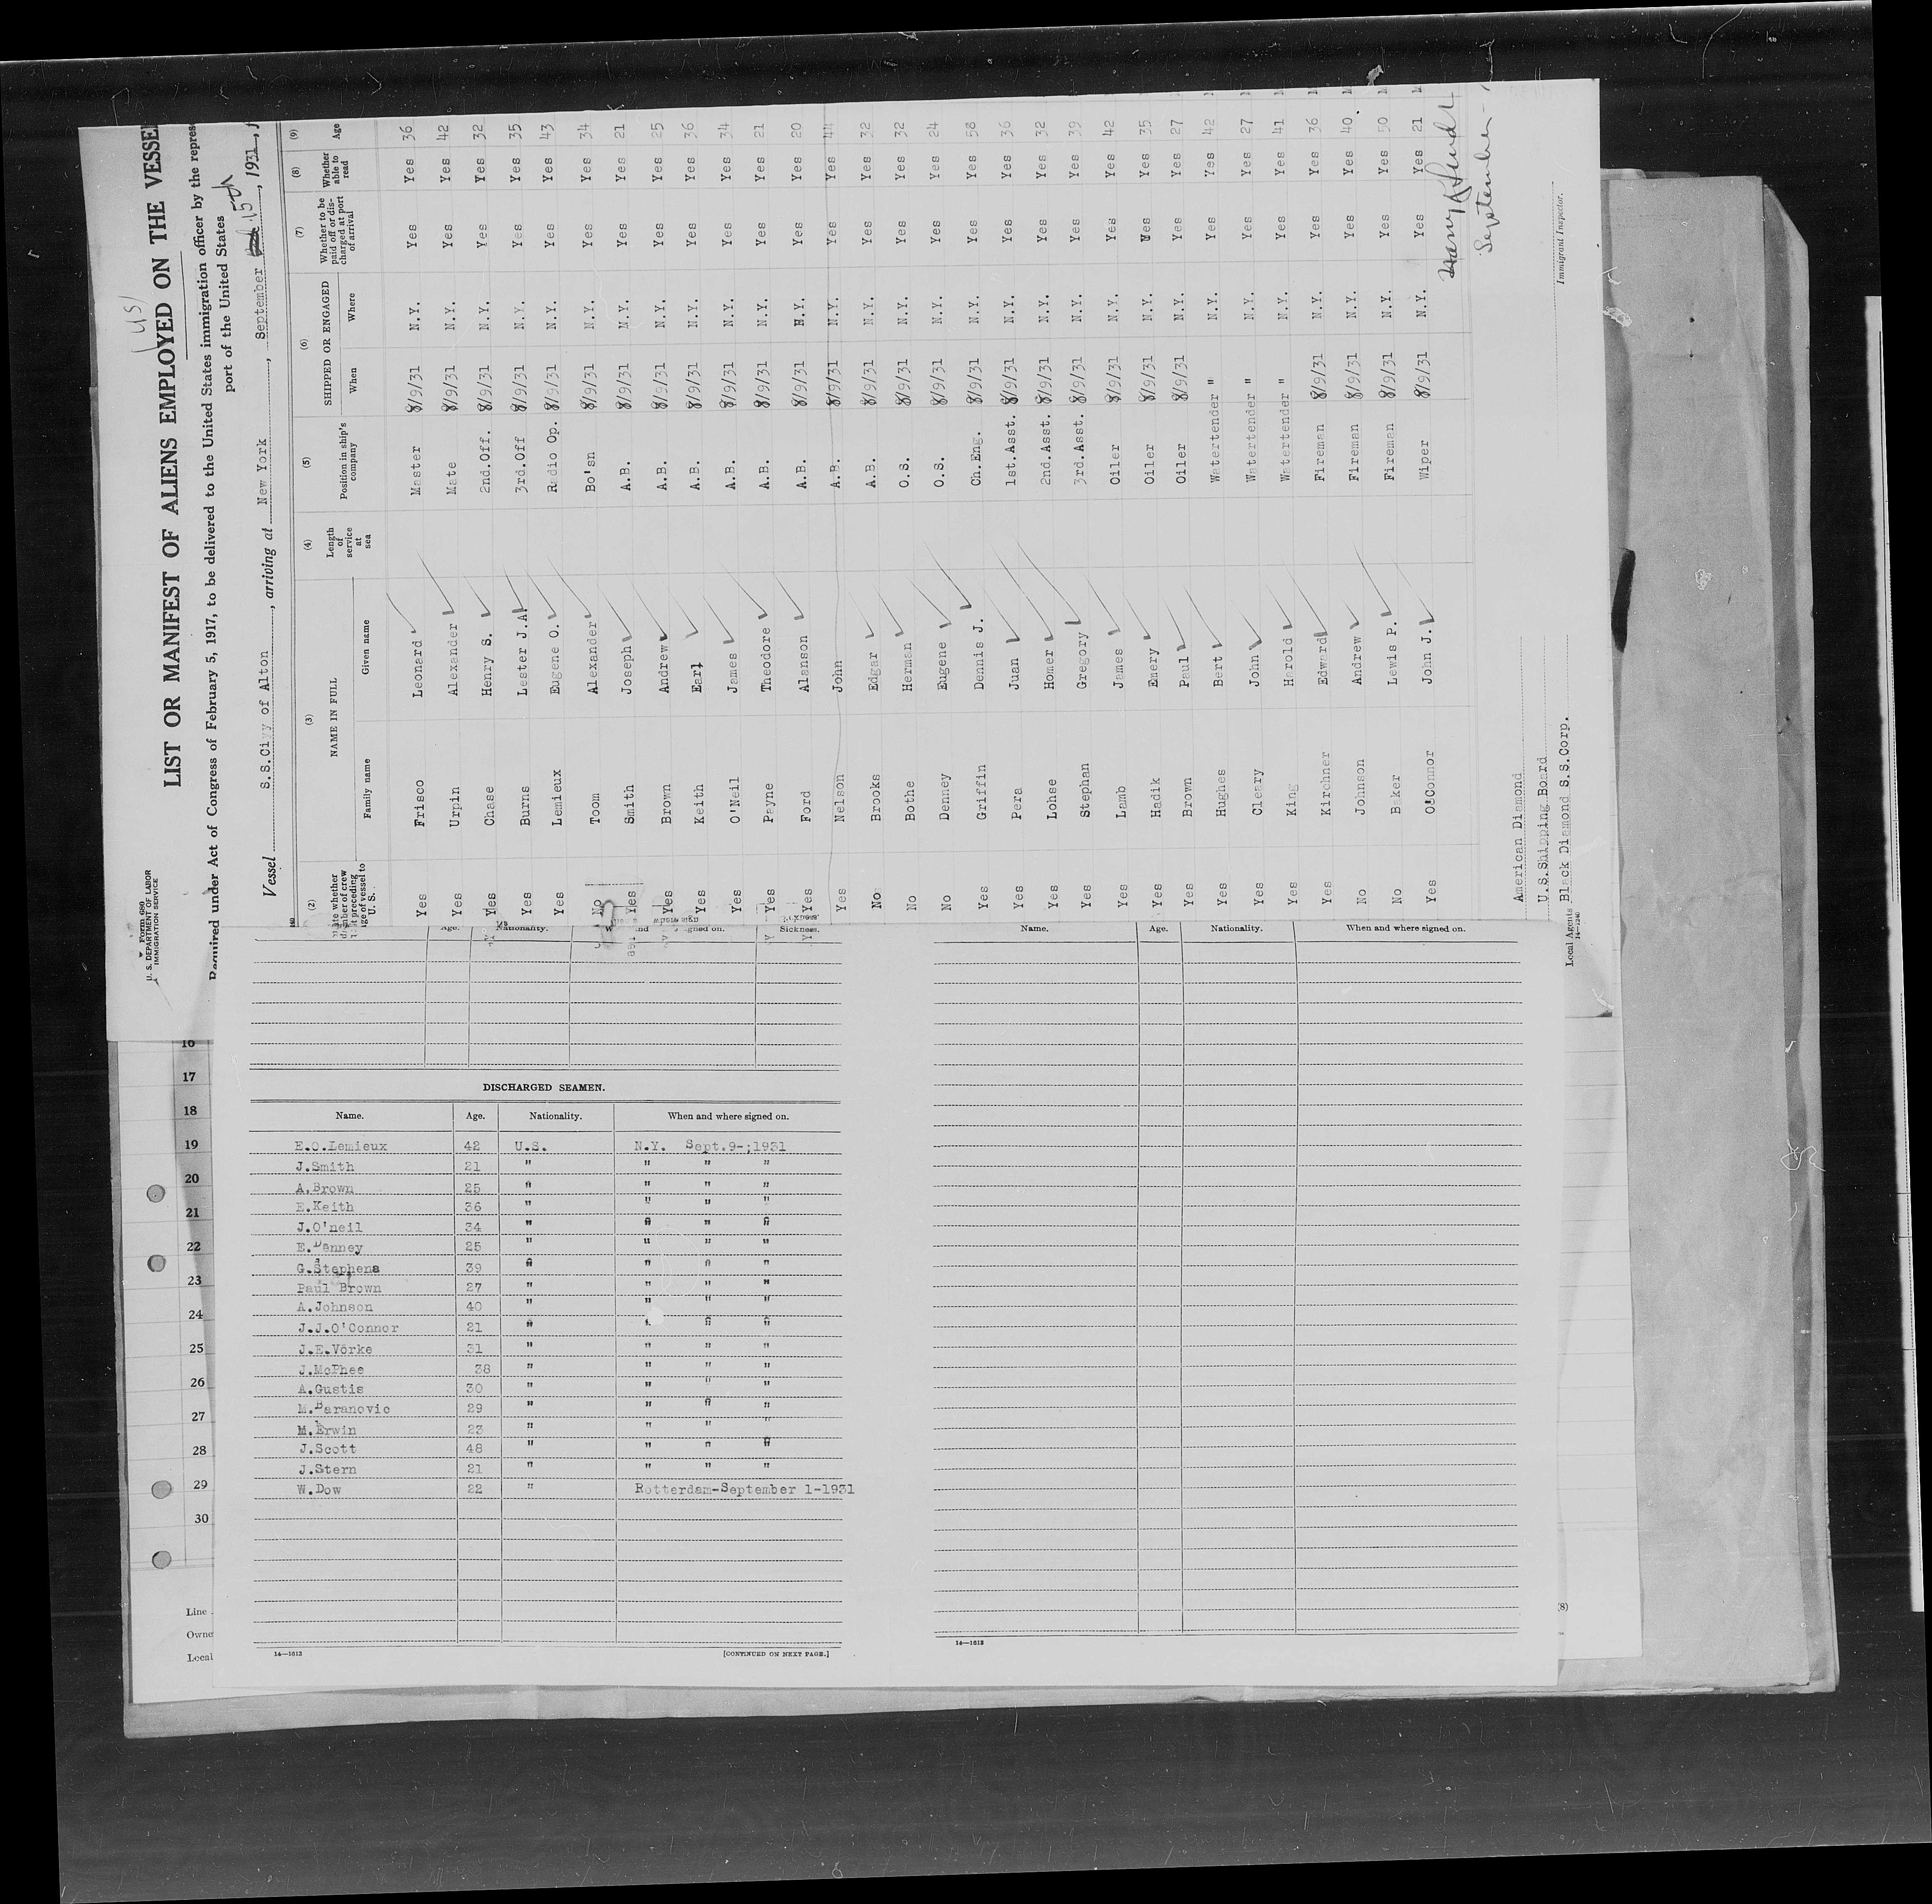 LIST OR MANIFEST OF ALIENS EMPLOYED ON THE VESSEL
Form 680
U. S. DEPARTMENT OF LABOR
IMMIGRATION SERVICE
Required under Act of Congress of February 5, 1917, to be delivered to the United States immigration officer by the represe
port of the United States
Vessel S.S.City of Alton, arriving at New York, September 15th, 1931,
(2) (3) (4) (5) (6) (7) (8) (9)
NAME IN FULL Length of service at sea Position in ship's company SHIPPED OR ENGAGED Whether to be paid off or discharged at port of arrival Whether able to read Age
Family name Given name When Where
Yes Frisco Leonard Master 8/9/31 N.Y. Yes Yes 36
Yes Urpin Alexander Mate 8/9/31 N.Y. Yes Yes 42
Yes Chase Henry S. 2nd.Off. 8/9/31 N.Y. Yes Yes 32
Yes Burns Lester J.A. 3rd.Off 8/9/31 N.Y. Yes Yes 35
Yes Lemieux Eugene O. Radio Op. 8/9/31 N.Y. Yes Yes 43
No Toom Alexander Bo'sn 8/9/31 N.Y. Yes Yes 34
Yes Smith Joseph A.B. 8/9/31 N.Y. Yes Yes 21
Yes Brown Andrew A.B. 8/9/31 N.Y. Yes Yes 25
Yes Keith Earl A.B. 8/9/31 N.Y. Yes Yes 36
Yes O'Neil James A.B. 8/9/31 N.Y. Yes Yes 34
Yes Payne Theodore A.B. 8/9/31 N.Y. Yes Yes 21
Yes Ford Alanson A.B. 8/9/31 N.Y. Yes Yes 20
Yes Nelson John A.B. 8/9/31 N.Y. Yes Yes 44
No Brooks Edgar A.B. 8/9/31 N.Y. Yes Yes 32
No Bothe Herman O.S. 8/9/31 N.Y. Yes Yes 32
No Denney Eugene O.S. 8/9/31 N.Y. Yes Yes 24
Yes Griffin Dennis J. Ch.Eng. 8/9/31 N.Y. Yes Yes 58
Yes Pera Juan 1st.Asst. 8/9/31 N.Y. Yes Yes 36
Yes Lohse Homer 2nd.Asst. 8/9/31 N.Y. Yes Yes 32
Yes Stephan Gregory 3rd.Asst. 8/9/31 N.Y. Yes Yes 39
Yes Lamb James Oiler 8/9/31 N.Y. Yes Yes 42
Yes Hadik Emery Oiler 8/9/31 N.Y. Yes Yes 35
Yes Brown Paul Oiler 8/9/31 N.Y. Yes Yes 27
Yes Hughes Bert Watertender " N.Y. Yes Yes 42
Yes Cleary John Watertender " N.Y. Yes Yes 27
Yes King Harold Watertender " N.Y. Yes Yes 41
Yes Kirchner Edward Fireman 8/9/31 N.Y. Yes Yes 36
No Johnson Andrew Fireman 8/9/31 N.Y. Yes Yes 40
No Baker Lewis P. Fireman 8/9/31 N.Y. Yes Yes 50
Yes O'Connor John J. Wiper 8/9/31 N.Y. Yes Yes 21
American Diamond
U.S.Shipping Board
Local Agents Black Diamond S.S.Corp.
September
Immigrant Inspector.
Age. Nationality. Sickness.
Name. Age. Nationality. When and where signed on.
DISCHARGED SEAMEN.
Name. Age. Nationality. When and where signed on.
E.O.Lemieux 42 U.S. N.Y. Sept.9-;1931
J.Smith 21 " " " "
A.Brown 25 " " " "
E.Keith 36 " " " "
J.O'neil 34 " " " "
E.Denney 25 " " " "
G.Stephens 39 " " " "
Paul Brown 27 " " " "
A.Johnson 40 " " " "
J.J.O'Connor 21 " " " "
J.E.Vorke 31 " " " "
J.McPhee 38 " " " "
A.Gustis 30 " " " "
M.Baranovic 29 " " " "
M.Erwin 23 " " " "
J.Scott 48 " " " "
J.Stern 21 " " " "
W.Dow 22 " Rotterdam-September 1-1931
14—1613 [CONTINUED ON NEXT PAGE.]
14—1613
16
17
18
19
20
21
22
23
24
25
26
27
28
29
30
Line
Owne
Local
(8)